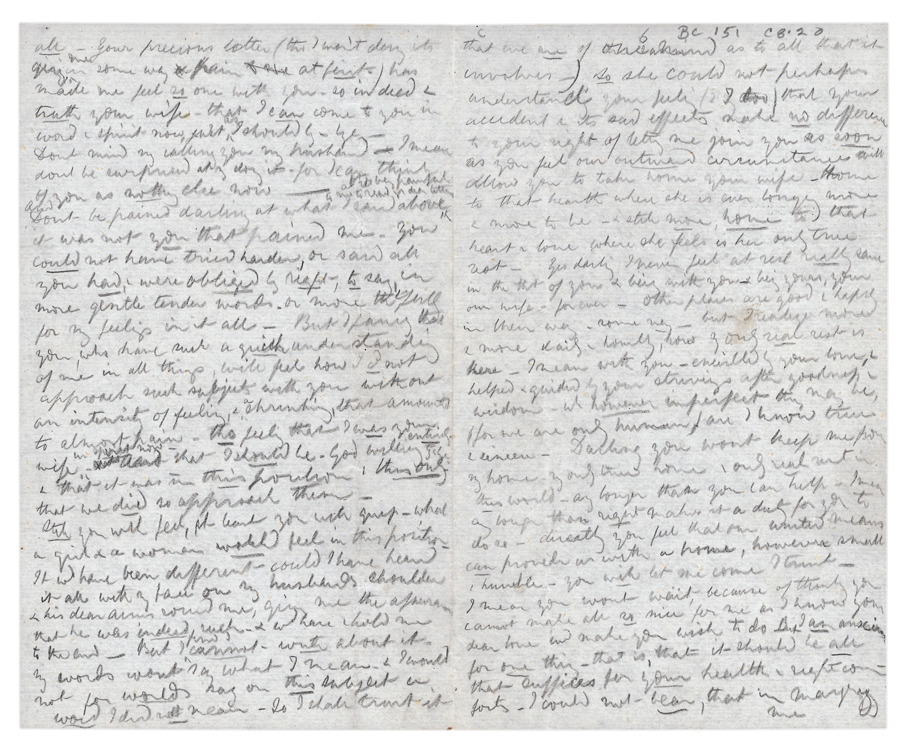 all - Your precious letter (tho' I won't deny its
giving me some way pain at first) has
made me feel so one with you - so indeed &
truth your wife - that I can come to you in
word & spirit now, just as I should by - ye -
Dont mind my calling you my husband - I mean
dont be surprised at my doing it - for I can think
of you as nothg else now -
Dont be pained darling at what I said above
it was not you that pained me - You
could not have tried harder, or said all
you had, & were obliged by right, to say, in
more gentle tender words - or more thotfully
for my feelings in it all - But I fancy that
you, who have such a quick understandg
of me in all things, will feel how I'd not
approach such subject with you without
an intensity of feeling, & a shrinking, that amounts
to almost pain - tho' feelg that I was your
wife - that I should be - God willing
& that it was in this position & this only
that we did so approach them -
Still you will feel, at least you will guess - what
a girl & a woman would feel in this position
It wd have been different - could I have heard
it all with my face on my husband's shoulder
& his dear arms round me, givg me the assurance
that he was indeed such - & wd have & hold me
to the end - But I cannot write about it -
my words wont say what I mean - & I would
not for worlds say on this subject a
word I did not mean - So I shall trust it
6 BC 151 CB.20
that we are of one mind as to all that it
involves -) So she could not perhaps
understand your feelg (& I too) that your
accident & its sad effects make no difference
to your right of lettg me join you as soon
as you feel our outward circumstances will
allow you to take home your wife - home
to that hearth where she is ever longg more
& more to be - & still more, home to that
heart & love where she feels is her only true
rest - Yes darlg I never feel at rest really save
in the tht of you & being with you & beg yours, your
own wife - for ever - other places are good & helpful
in their way - some ney - but I realize more
& more daily & hourly how my only real rest is
here - I mean with you - encircled by your love, &
helped & guided by your strivings after goodness &
wisdom - wh however imperfect they may be,
(for we are only human) are I know true
& sincere - Darling you wont keep me from
my home - my only true home & only real rest in
this world - any longer than you can help - I mean
any longer than right makes it a duty for you to
do so - directly you feel that our united means
can provide us with a home, however small
& humble - you will let me come I trust -
I mean you wont wait because of thinkg you
cannot make all so nice for me as I know your
dear love wd make you wish to do But am anxious
for one thing - that is, that it should be all
that suffices for your health & right com-
forts - I could not bear, that in marryg
me